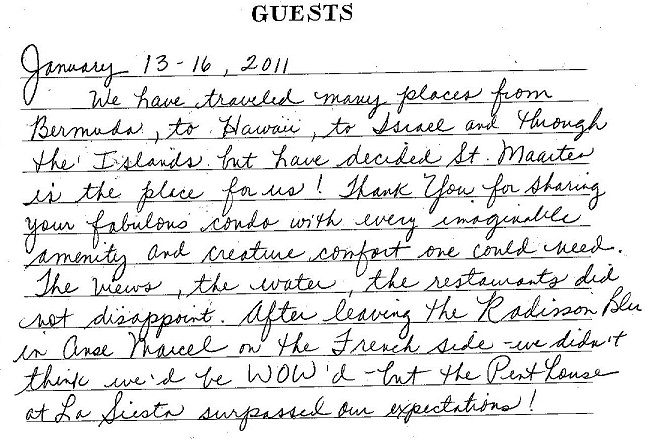 GUESTS
January 13-16, 2011
We have traveled many places from
Bermuda, to Hawaii, to Israel and through
the Islands but have decided St. Maarten
is the place for us! Thank You for sharing
your fabulous condo with every imaginable
amenity and creature comfort one could need.
The views, the water, the restaurants did
not disappoint. After leaving the Radisson Blu
in Anse Marcel on the French side - we didn't
think we'd be WOW'd - but the Pent House
at La Siesta surpassed our expectations!